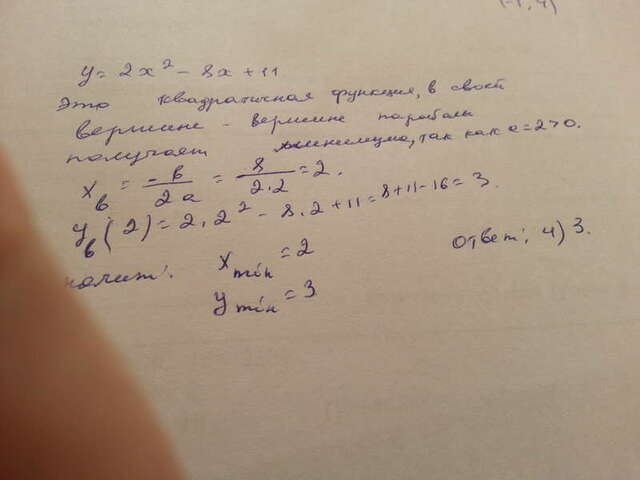 (-1; 4)
y = 2x² - 8x + 11
Это квадратичная функция, в своей
вершине - вершине параболы
получает минимума, так как a = 2 > 0.
x_в = -в/2a = 8/2·2 = 2.
y_в(2) = 2·2² - 8·2 + 11 = 8 + 11 - 16 = 3.
значит: x_min = 2
Ответ: 4) 3.
y_min = 3